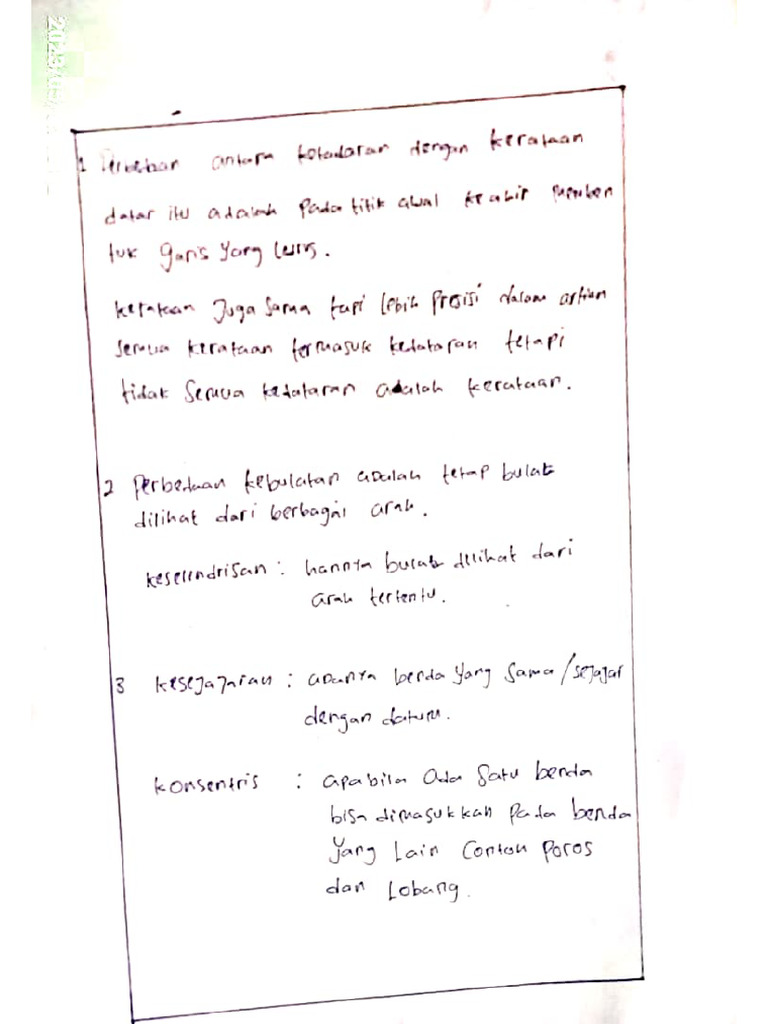 1 Perbedaan antara kedataran dengan kerataan
datar itu adalah pada titik awal ke akhir memben
tuk garis yang lurus.
kerataan Juga sama tapi lebih presisi dalam artian
semua kerataan termasuk kedataran tetapi
tidak Semua kedataran adalah kerataan.
2 Perbedaan kebulatan adalah tetap bulat
dilihat dari berbagai arah.
keselindrisan : hannya bulat dilihat dari
arah tertentu.
3 kesejajaran : adanya benda yang sama/sejajar
dengan datum.
konsentris : apabila Ada Satu benda
bisa dimasukkan pada benda
yang Lain Contoh Poros
dan Lobang.